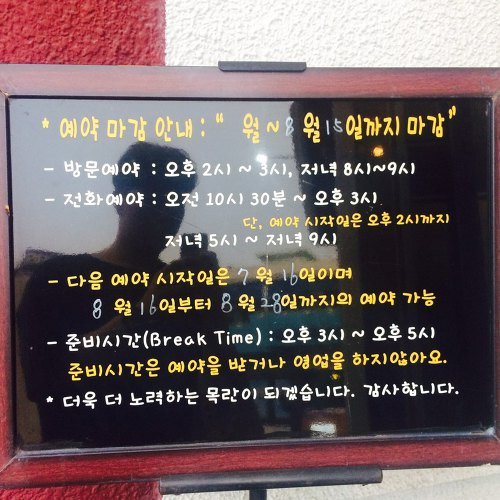 * 예약 마감 안내 : " 월 ~ 8 월 15일까지 마감"
- 방문예약 : 오후 2시 ~ 3시, 저녁 8시~9시
- 전화예약 : 오전 10시 30분 ~ 오후 3시
단, 예약 시작일은 오후 2시까지
저녁 5시 ~ 저녁 9시
- 다음 예약 시작일은 7 월 16일이며
8 월 16일부터 8 월 28일까지의 예약 가능
- 준비시간(Break Time) : 오후 3시 ~ 오후 5시
준비시간은 예약을 받거나 영업을 하지않아요.
* 더욱 더 노력하는 목란이 되겠습니다. 감사합니다.